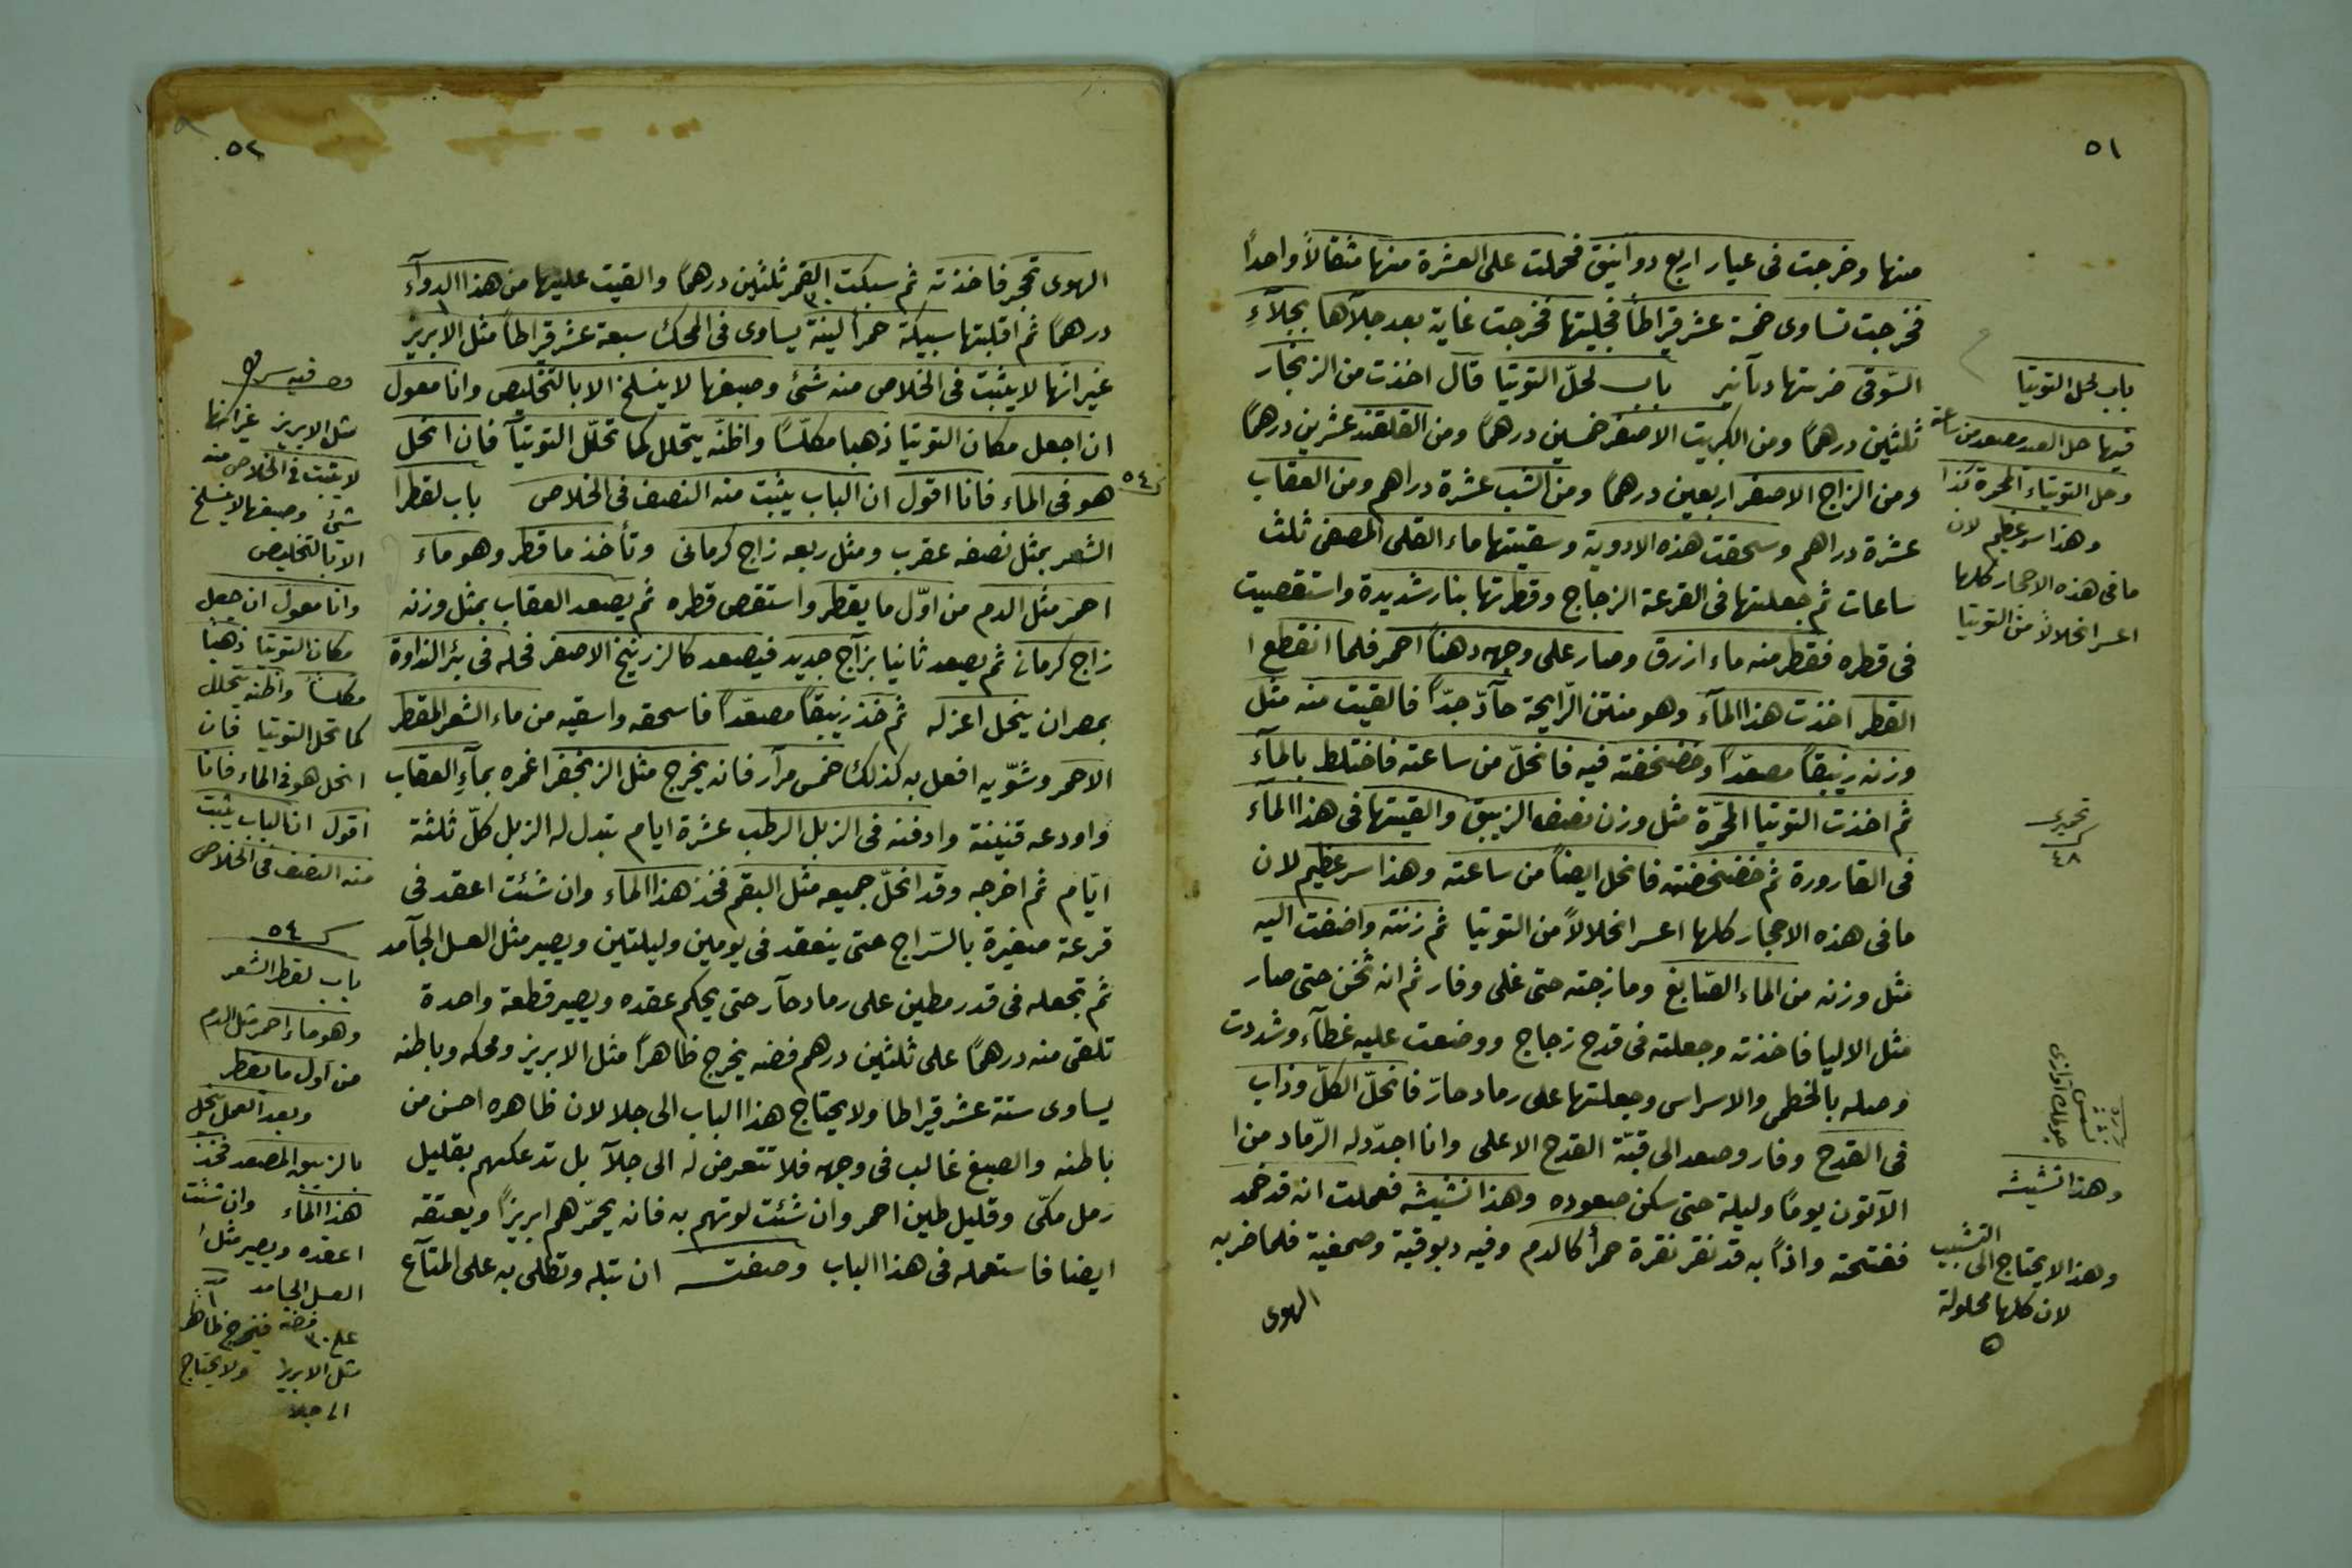 ٥١
منها وخرجت فى عيار اربع دوانيق فحملت على العشرة منها مثقالاً واحداً
فخرجت تساوى خمسة عشر قيراطاً فجليتها فخرجت غاية بعد جلآها بجلآءِ
السّوقى ضربتها دنآنير باب لحلّ التوتيا قال اخذت من الزنجار
ثلثين درهماً ومن الكبريت الاصفر خمسين درهماً ومن القلقند عشرين درهماً
ومن الزاج الاصفر اربعين درهماً ومن الشب عشرة دراهم ومن العقاب
عشرة دراهم وسحقت هذه الادوية وسقيتها ماء القلى المصفى ثلث
ساعات ثم جعلتها فى القرعة الزجاج وقطرتها بنار شديدة واستقصيت
فى قطره فقطر منه ماء ازرق وصار على وجهه دهناً احمر فلما انقطع ا
القطر اخذت هذا المآء وهو منتن الرّايحة حآدّ جدّاً فالقيت منه مثل
وزنه زيبقاً مصعّداً وخضخضته فيه فانحلّ من ساعته فاختلط بالمآء
ثم اخذت التوتيا المحمّرة مثل وزن نصف الزيبق والقيتها فى هذا المآء
فى القارورة ثم خضخضته فانحل ايضاً من ساعته وهذا سر عظيم لان
ما فى هذه الاحجار كلها اعسر انحلالاً من التوتيا ثم زنته واضفت اليه
مثل وزنه من الماء الصّابغ ومازجته حتى غلى وفار ثم انه ثخن حتى صار
مثل الاليا فاخذته وجعلته فى قدح زجاج ووضعت عليه غطآء وشددت
وصله بالخطمى والاسراس وجعلتها على رماد حارّ فانحلّ الكلّ وذاب
فى القدح وفار وصعد الى قبّة القدح الاعلى وانا اجدّد له الرّماد من ا
الآتون يوماً وليلة حتى سكن صعوده وهذا نشيشه فعملت انه قد خمد
ففتحته واذاً به قد نقر نقرة حمرأ كالدم وفيه دبوقية وصمغية فلما ضربه
الهوى
باب لحل التوتيا
فيها حل العبد مصعد من ساعته
وحل التوتياء المحمرة كذا
وهذا سر عظيم لان
ما فى هذه الاحجار كلها
اعسر انحلالاً من التوتيا
٤٨
وهذا نشيشه
وهذا لايحتاج الى التشبيب
لان كلها محلولة
٥٢
الهوى تحجر فاخذته ثم سبكت القمر ثلثين درهماً والقيت عليها من هذا الدوآء
٣٠
درهماً ثم اقلبتها سبيكة حمرأ لينة يساوى فى المحك سبعة عشر قيراطاً مثل الابريز
غير انها لايثبت فى الخلاص منه شئ وصبغها لاينسلخ الا بالتخليص وانا معول
ان اجعل مكان التوتيا ذهبا مكلّساً واظنّه يتحلل كما تحلّل التوتيآ فان انحل
هو فى الماء فانا اقول ان الباب يثبت منه النصف فى الخلاص باب لقطر ا
٥٤
الشعر بمثل نصفه عقرب ومثل ربعه زاج كرمانى وتأخذ ما قطر وهو ماء
احمر مثل الدم من اوّل ما يقطر واستقص قطره ثم يصعد العقاب بمثل وزنه
زاج كرمانى ثم يصعد ثانيا بزآج جديد فيصعد كالزرنيخ الاصفر فحله فى بئر النداوة
بمصران ينحل اعزله ثم خذ زيبقاً مصعّداً فاسحقه واسقيه من ماء الشعر المقطر
الاحمر وشوّيه افعل به كذلك خمس مرآر فانه يخرج مثل الزنجفر اغمره بمآءِ العقاب
واودعه قنينة وادفنه فى الزبل الرطب عشرة ايام تبدل له الزبل كلّ ثلثة
ايّام ثم اخرجه وقد انحلّ جميعه مثل البقم فخذ هذا الماء وان شئت اعقد فى
قرعة صغيرة بالسّراج حتى ينعقد فى يومين وليلتين ويصير مثل العسل الجآمد
ثم تجعله فى قدر مطين على رماد حآر حتى يحكم عقده ويصير قطعة واحدة
تلقى منه درهماً على ثلثين درهم فضه يخرج ظاهراً مثل الابريز ومحكه وباطنه
يساوى ستة عشر قيراطا ولايحتاج هذا الباب الى جلا لان ظاهره احسن من
باطنه والصبغ غالب فى وجهه فلا تتعرض له الى جلآ بل تدعكهم بقليل
رمل مكّى وقليل طين احمر وان شئت لوتهم به فانه يحمّرهم ابريزاً ويعتقه
ايضا فاستعمله فى هذا الباب وصفته ان تبله وتطلى به على المتآع
مثل الابريز غير انها
لايثبت فى الخلاص منه
شئ وصبغها لاينسلخ
الا بالتخليص
وانا معول ان جعل
مكان التوتيا ذهباً
مكلساً واظنه يتحلل
كما تحل التوتيا فان
انحل هو فى الماء فانا
اقول ان الباب يثبت
منه النصف فى الخلاص
٥٤
باب لقطر الشعر
وهو ماء احمر مثل الدم
من اول ما يقطر
وبعد العمل ينحل
بالزيبق المصعد فخذ
هذا الماء وان شئت
اعقده ويصير مثل
العسل الجامد
على ٣٠ فضة فتخرج ظاهر
مثل الابريز ولايحتاج
الى جلا